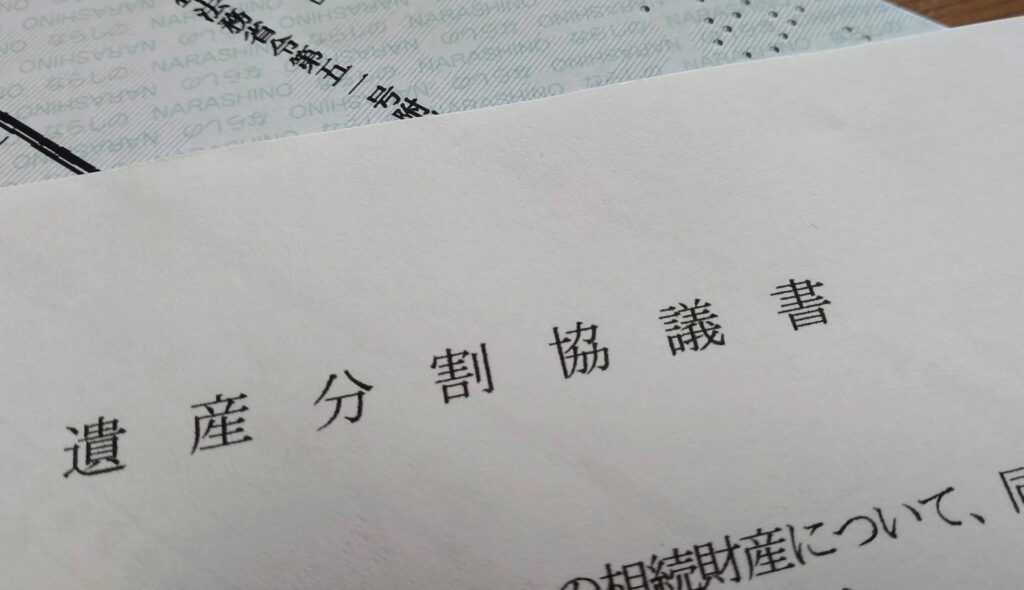 法務省令第五一号附
NARASHINO ならしの NARASHINO ならしの
遺産分割協議書
の相続財産について、同